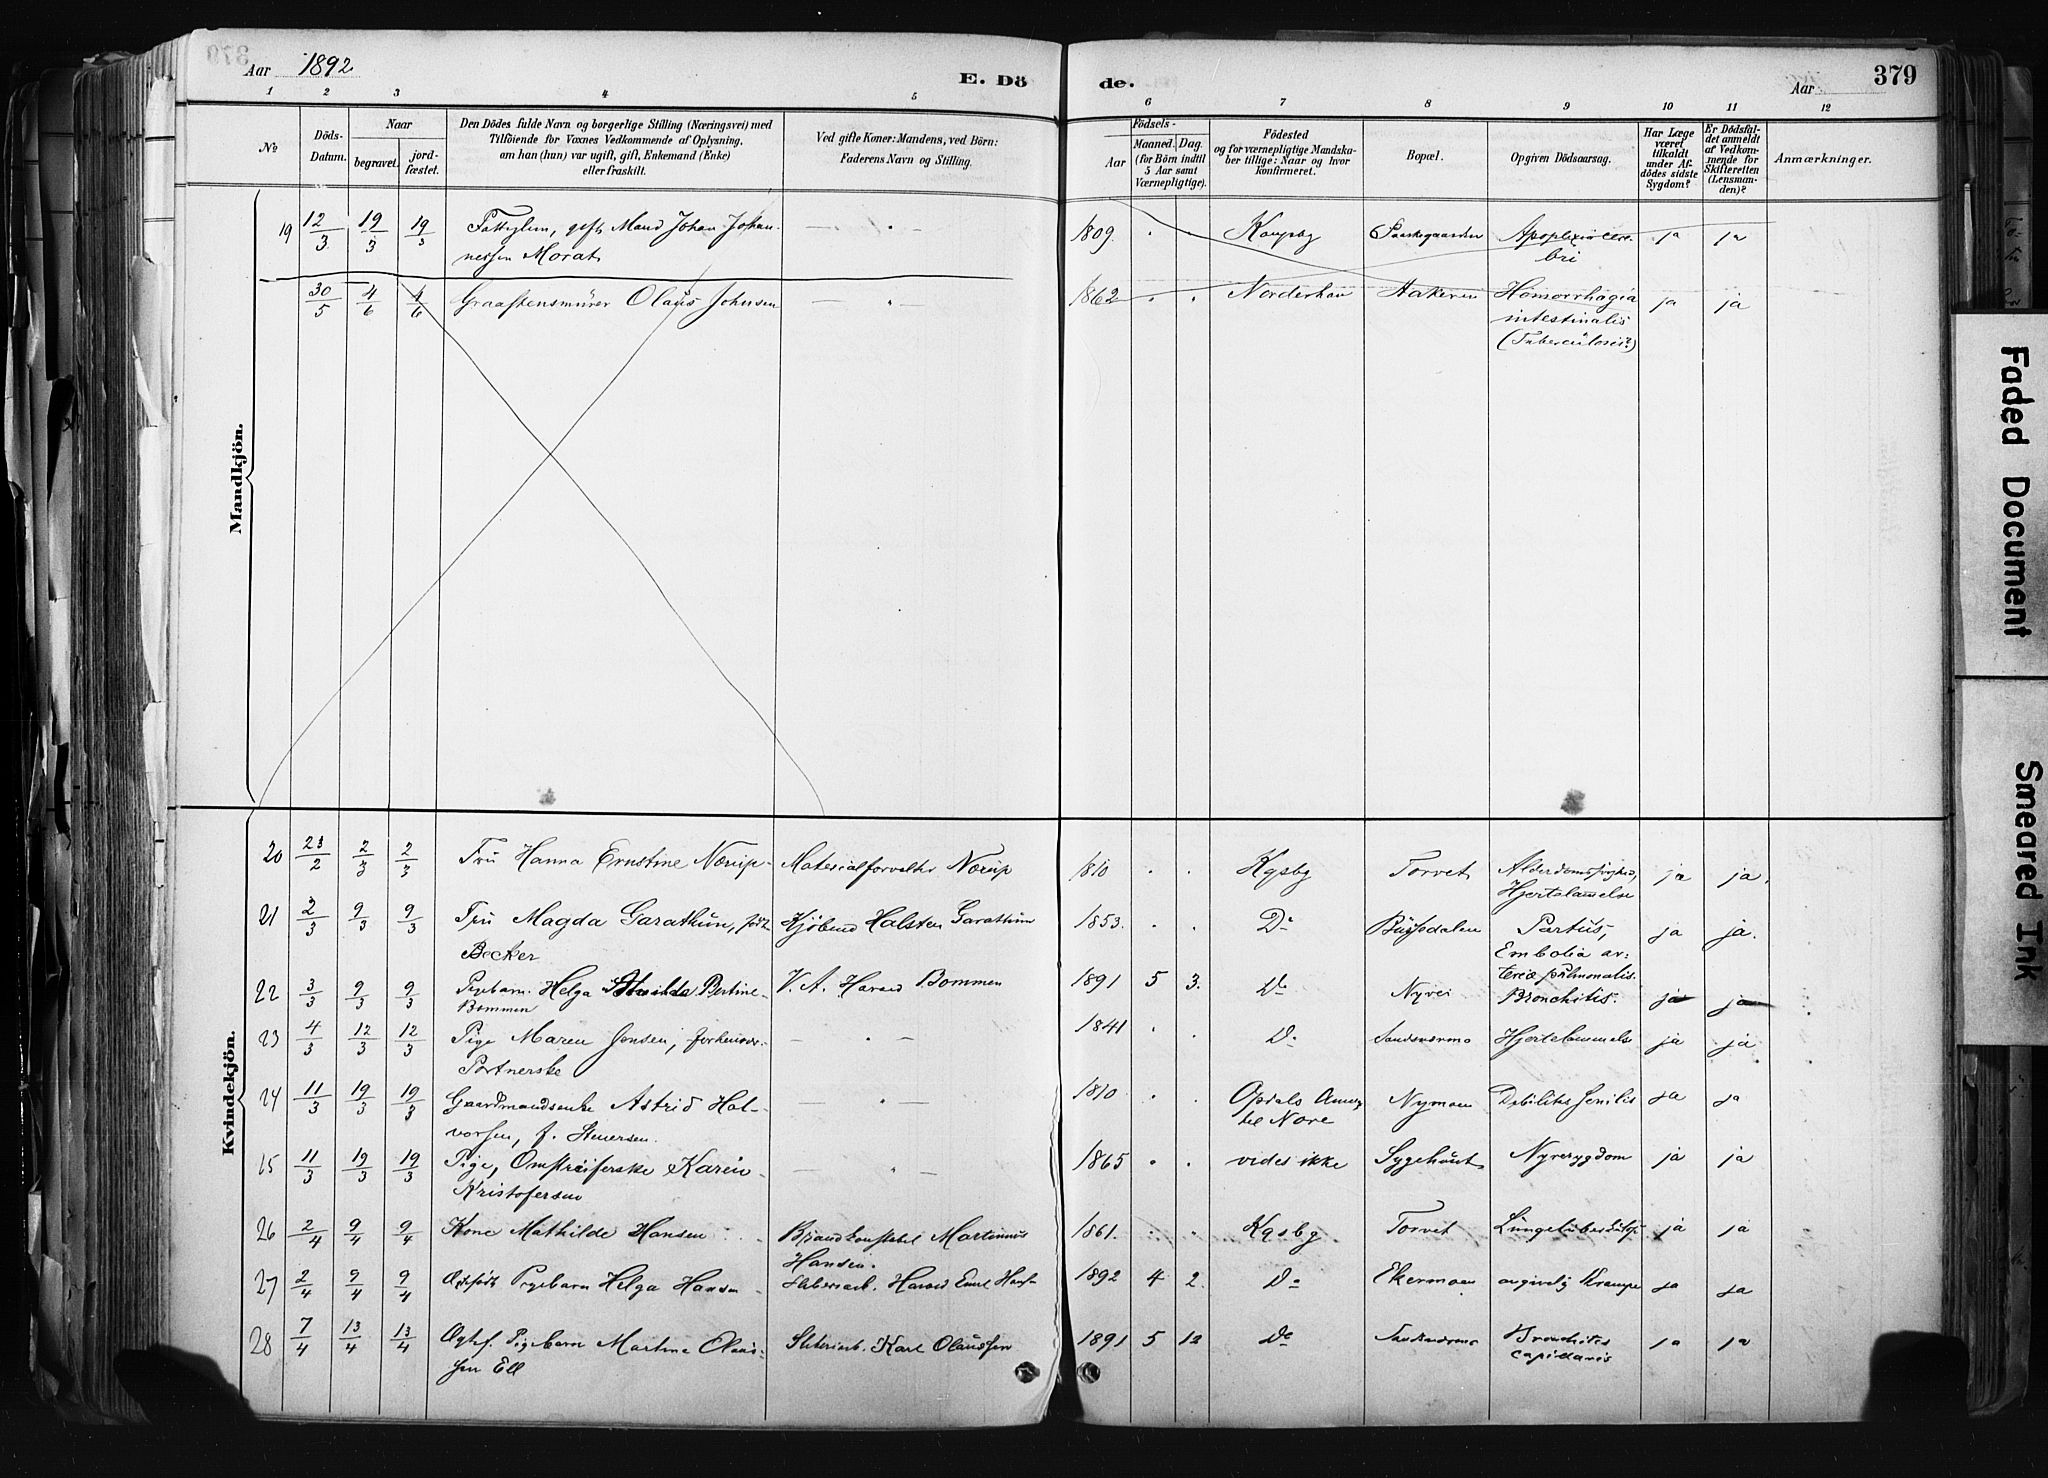 Aar 1892
E. Dö
de.
Aar
379
1 2 3 4 5 6 7 8 9 10 11 12
No
Döds-
Datum.
Naar
begravet.
jord-
fæstet.
Den Dödes fulde Navn og borgerlige Stilling (Næringsvei) med
Tilföiende for Voxnes Vedkommende af Oplysning,
om han (hun) var ugift, gift, Enkemand (Enke)
eller fraskilt.
Ved gifte Koner: Mandens, ved Börn:
Faderens Navn og Stilling.
Födsels-
Aar
Maaned. Dag.
(for Börn indtil
5 Aar samt
Værnepligtige).
Födested
og for værnepligtige Mandska-
ber tillige: Naar og hvor
konfirmeret.
Bopæl.
Opgiven Dödsaarsag.
Har Læge
været
tilkaldt
under Af-
dödes sidste
Sygdom?
Er Dödsfal-
det anmeldt
af Vedkom-
mende for
Skifteretten
(Lensman-
den)?
Anmærkninger.
Mandkjön.
19 12/3 19/3 19/3 Fattiglem, gift Mand Johan Johan- — " — 1809. " " Kongsby Apoplexia cere- ja ja
nessen Morat bri
30/5 4/6 4/6 Graastensmürer Olaüs Johnsen — " — 1862 " " Norderhov Aakeren Hömorrhagia ja ja
intestinalis
(Tuberculosis?)
Kvindekjön.
20 23/2 2/3 2/3 Frü Hanna Ernstine Nørup Materialforvalter Nørüp 1810 . . Kgsby Torvet Alderdomssvaghed, ja ja.
Hjertelammelse
21 2/3 9/3 9/3 Frü Magda Garathün, født Kjöbmd Halsten Garathün 1853. . . Do Büssedalen Partus, ja ja.
Becker Embolia ar-
teriæ pülmonalis.
22 3/3 9/3 9/3 Pigebarn Helga Bertine V. A. Harald Bommen 1891 5 3. Do Nyvei Bronchitis. ja ja
Bommen
23 4/3 12/3 12/3 Pige Maren Jensen, forhenvær. — " — 1841 . . Do Hjertelammelse ja ja
Portnerske
24 11/3 19/3 19/3 Gaardmandsenke Astrid Hal- — " — 1810. . . Opdals Annex Nymoen Debilitas senilis ja ja
vorsen, f. Steversen. til Nore
25 11/3 19/3 19/3 Pige, Omstreiferske Karen — " — 1865 . . vides ikke Sygehüset Nyresygdom ja ja
Kristofersen
26 2/4 9/4 9/4 Kone Mathilde Hansen Brandkonstabel Martinius 1861. . . Kgsby Torvet ja ja
Hansen.
27 2/4 9/4 9/4 Pigebarn Helga Hansen Harald Emil 1892 4 2. Do Ekermoen angivelig Krampe ja ja
28 7/4 13/4 13/4 Ægtef. Pigebarn Martine Olaüs- Sliberiarb. Karl Olaüssen 1891 5 12 Do Bronchites ja ja
sen Ell capillaris
Faded Document
Smeared Ink